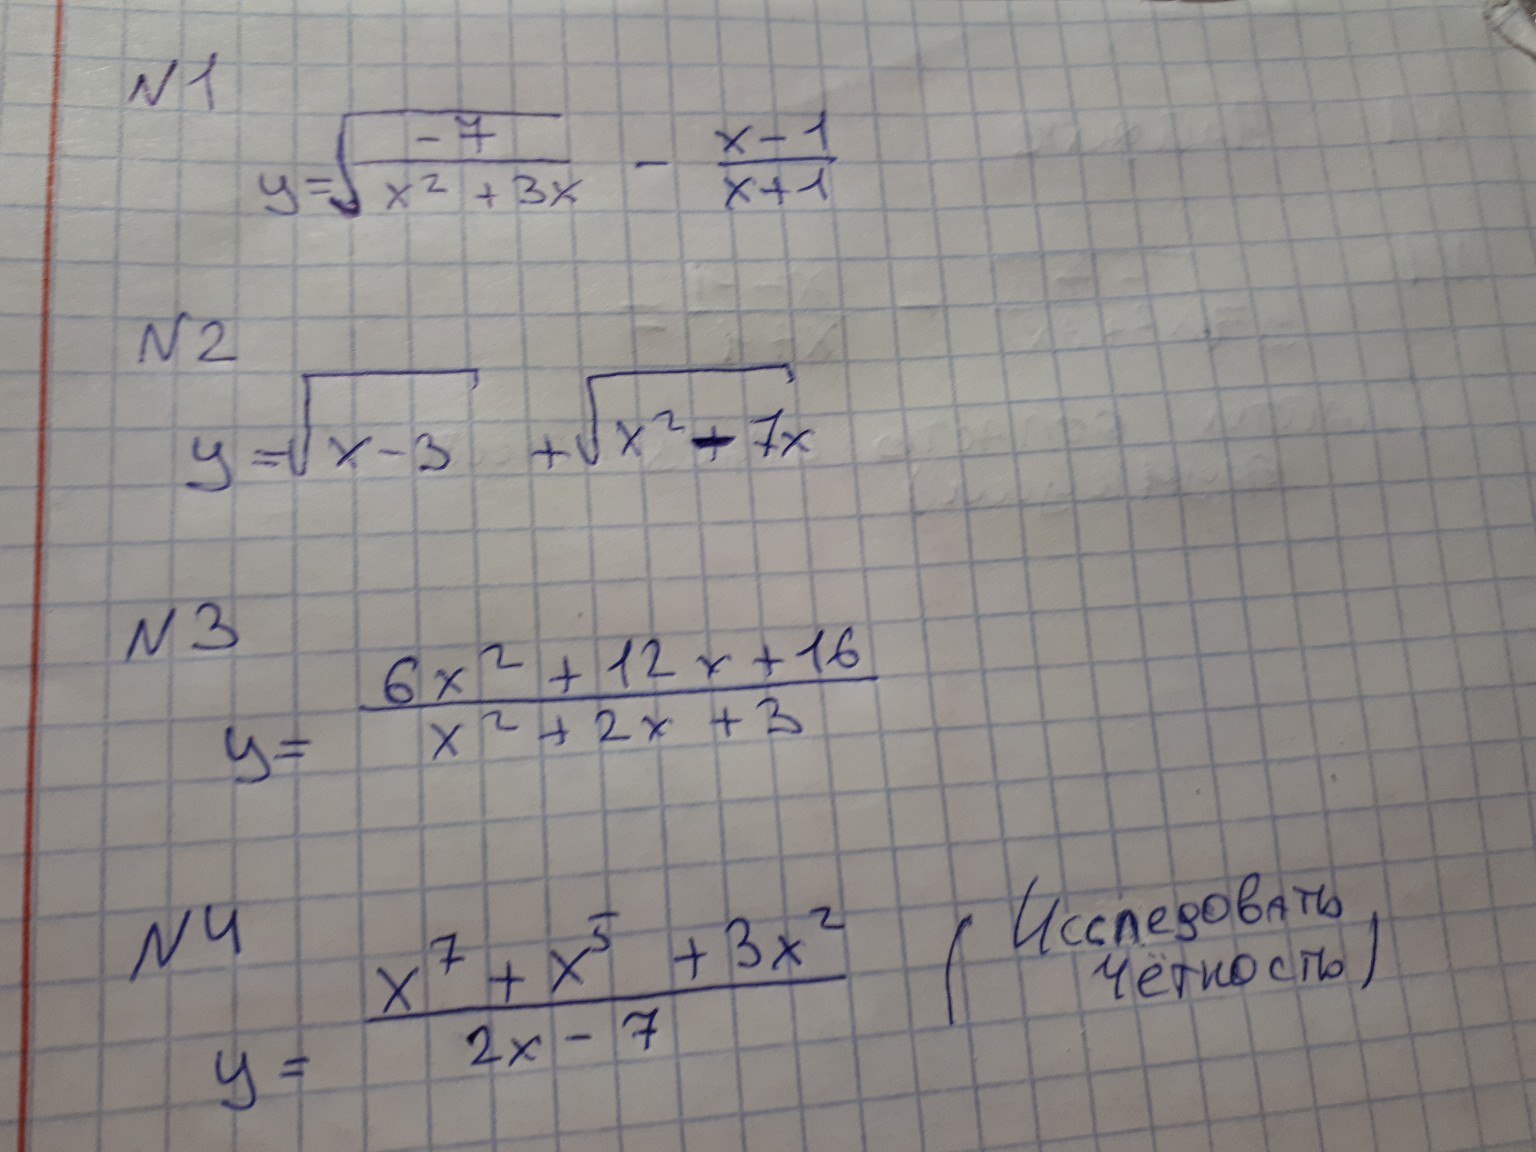 N1
y = √(-7 / (x² + 3x)) - (x - 1)/(x + 1)
N2
y = √(x - 3) + √(x² - 7x)
N3
y = (6x² + 12x + 16)/(x² + 2x + 3)
N4
y = (x⁷ + x⁵ + 3x²)/(2x - 7) (Исследовать
чётность)